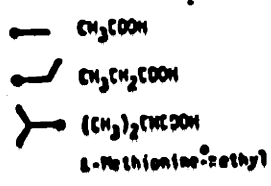 CH₃COOH
CH₃CH₂COOH
(CH₃)₂CHCOOH
L-Methionine-